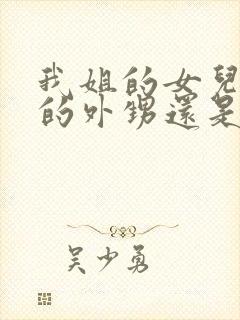 我姐的女兒
的外甥還是
吴少勇